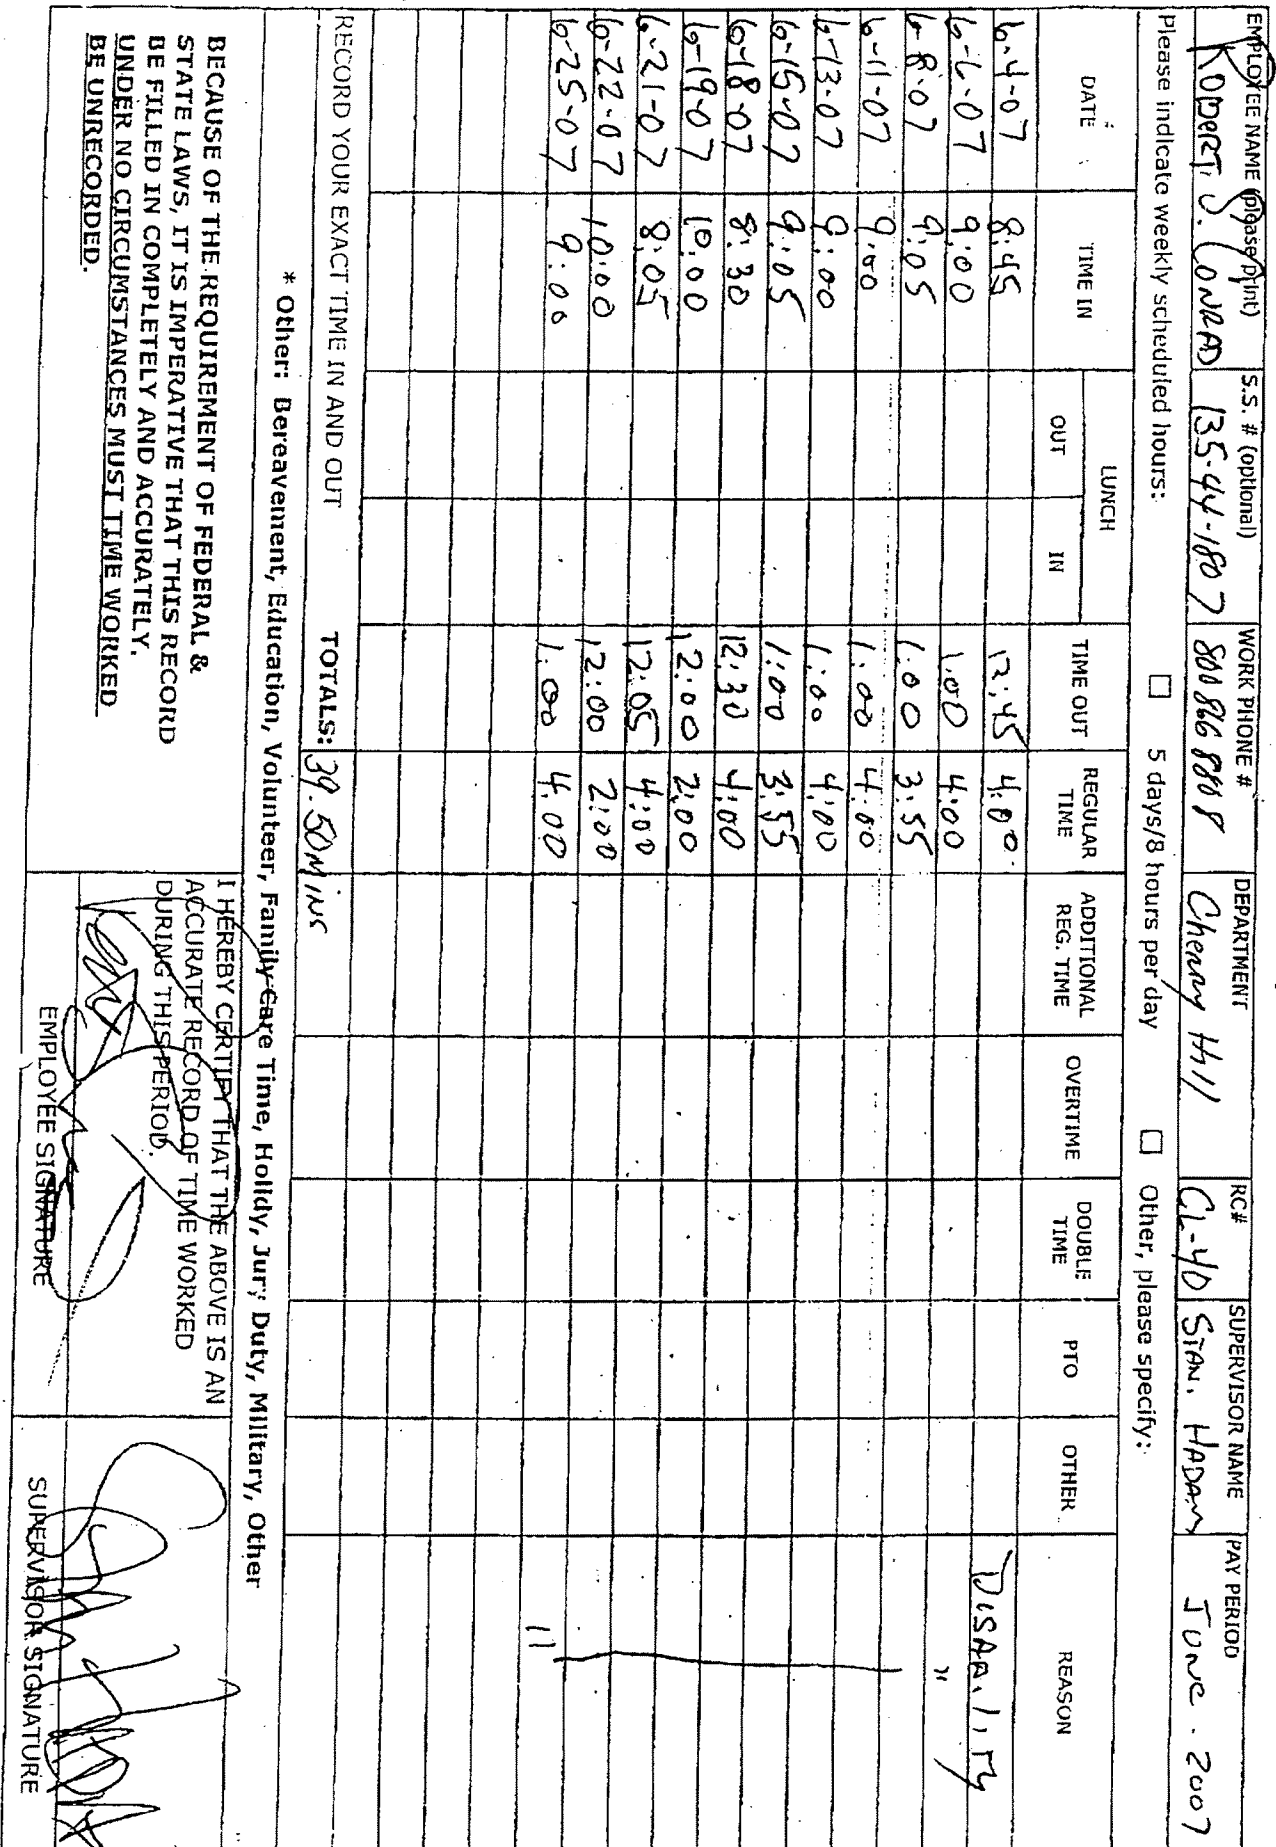 EMPLOYEE NAME (please print) S.S. # (optional) WORK PHONE # DEPARTMENT RC# SUPERVISOR NAME PAY PERIOD
ROBERT J. CONRAD 135-44-1807 800 866 8808 Cherry Hill CL-40 STAN. HADAM JUNE - 2007
Please indicate weekly scheduled hours: ☐ 5 days/8 hours per day ☐ Other, please specify:
DATE TIME IN LUNCH OUT IN TIME OUT REGULAR TIME ADDITIONAL REG. TIME OVERTIME DOUBLE TIME PTO OTHER REASON
6-4-07 8:45 12:45 4:00 DISABILITY
6-6-07 9:00 1:00 4:00 "
6-8-07 9:05 1:00 3:55
6-11-07 9:00 1:00 4:00
6-13-07 9:00 1:00 4:00
6-15-07 9:05 1:00 3:55
6-18-07 8:30 12:30 4:00
6-19-07 10:00 12:00 2:00
6-21-07 8:05 12:05 4:00
6-22-07 10:00 12:00 2:00
6-25-07 9:00 1:00 4:00 11
RECORD YOUR EXACT TIME IN AND OUT TOTALS: 39.50 MINS
* Other: Bereavement, Education, Volunteer, Family Care Time, Holidy, Jury Duty, Military, Other
BECAUSE OF THE REQUIREMENT OF FEDERAL &
STATE LAWS, IT IS IMPERATIVE THAT THIS RECORD
BE FILLED IN COMPLETELY AND ACCURATELY.
UNDER NO CIRCUMSTANCES MUST TIME WORKED
BE UNRECORDED.
I HEREBY CERTIFY THAT THE ABOVE IS AN
ACCURATE RECORD OF TIME WORKED
DURING THIS PERIOD.
EMPLOYEE SIGNATURE
SUPERVISOR SIGNATURE